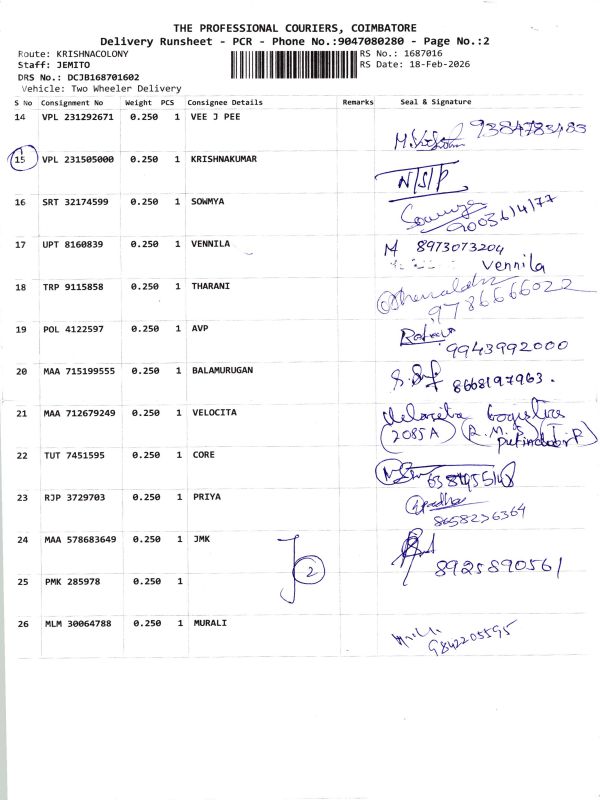 THE PROFESSIONAL COURIERS, COIMBATORE
Delivery Runsheet - PCR - Phone No.:9047080280 - Page No.:2
Route: KRISHNACOLONY RS No.: 1687016
Staff: JEMITO RS Date: 18-Feb-2026
DRS No.: DCJB168701602
Vehicle: Two Wheeler Delivery
S No Consignment No Weight PCS Consignee Details Remarks Seal & Signature
14 VPL 231292671 0.250 1 VEE J PEE 9384783483
15 VPL 231505000 0.250 1 KRISHNAKUMAR N/S/P
16 SRT 32174599 0.250 1 SOWMYA Sowmya
9003614177
17 UPT 8160839 0.250 1 VENNILA M 8973073204
Vennila
18 TRP 9115858 0.250 1 THARANI
9786666022
19 POL 4122597 0.250 1 AVP
9943992000
20 MAA 715199555 0.250 1 BALAMURUGAN 8668197963.
21 MAA 712679249 0.250 1 VELOCITA
(2085A)
22 TUT 7451595 0.250 1 CORE
23 RJP 3729703 0.250 1 PRIYA
8658236364
24 MAA 578683649 0.250 1 JMK 8925890561
2
25 PMK 285978 0.250 1
26 MLM 30064788 0.250 1 MURALI
9842205595